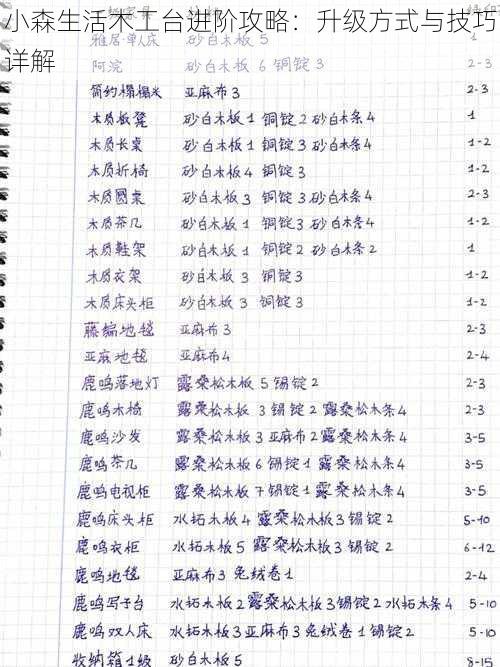 小森生活木工台进阶攻略：升级方式与技巧
详解
雅居·单人床 砂白木板 5
阿浣 砂白木板 6 铜锭 2 2-3
简约榻榻米 亚麻布 3 2-3
木质板凳 砂白木板 1 铜锭 2 砂白木条 4 1
木质长桌 砂白木板 1 铜锭 3 砂白木条 4 1-2
木质折椅 砂白木板 4 铜锭 3 1-2
木质圆桌 砂白木板 3 铜锭 3 砂白木条 4 2-3
木质茶几 砂白木板 1 铜锭 3 砂白木条 4 1-2
木质鞋架 砂白木板 1 铜锭 2 砂白木条 2 1
木质衣架 砂白木板 3 铜锭 3 1-2
木质床头柜 砂白木板 3 铜锭 3 1-2
藤编地毯 亚麻布 3 2-3
亚麻地毯 亚麻布 4 2-4
鹿鸣落地灯 露桑松木板 5 锡锭 2 2-3
鹿鸣木椅 露桑松木板 3 锡锭 2 露桑松木条 4 2-3
鹿鸣沙发 露桑松木板 3 亚麻布 2 露桑松木条 4 3-5
鹿鸣茶几 露桑松木板 6 锡锭 1 露桑松木条 4 3-5
鹿鸣电视柜 露桑松木板 7 锡锭 1 露桑松木条 4 3-5
鹿鸣床头柜 水拓木板 4 露桑松木板 3 锡锭 2 5-10
鹿鸣衣柜 水拓木板 5 露桑松木板 3 锡锭 2 6-12
鹿鸣地毯 亚麻布 3 兔绒卷 1 2-4
鹿鸣写字台 水拓木板 2 露桑松木板 3 锡锭 2 水拓木条 4 5-10
鹿鸣双人床 水拓木板 3 亚麻布 3 兔绒卷 1 锡锭 2 5-10
收纳箱 1级 砂白木板 5 8-15